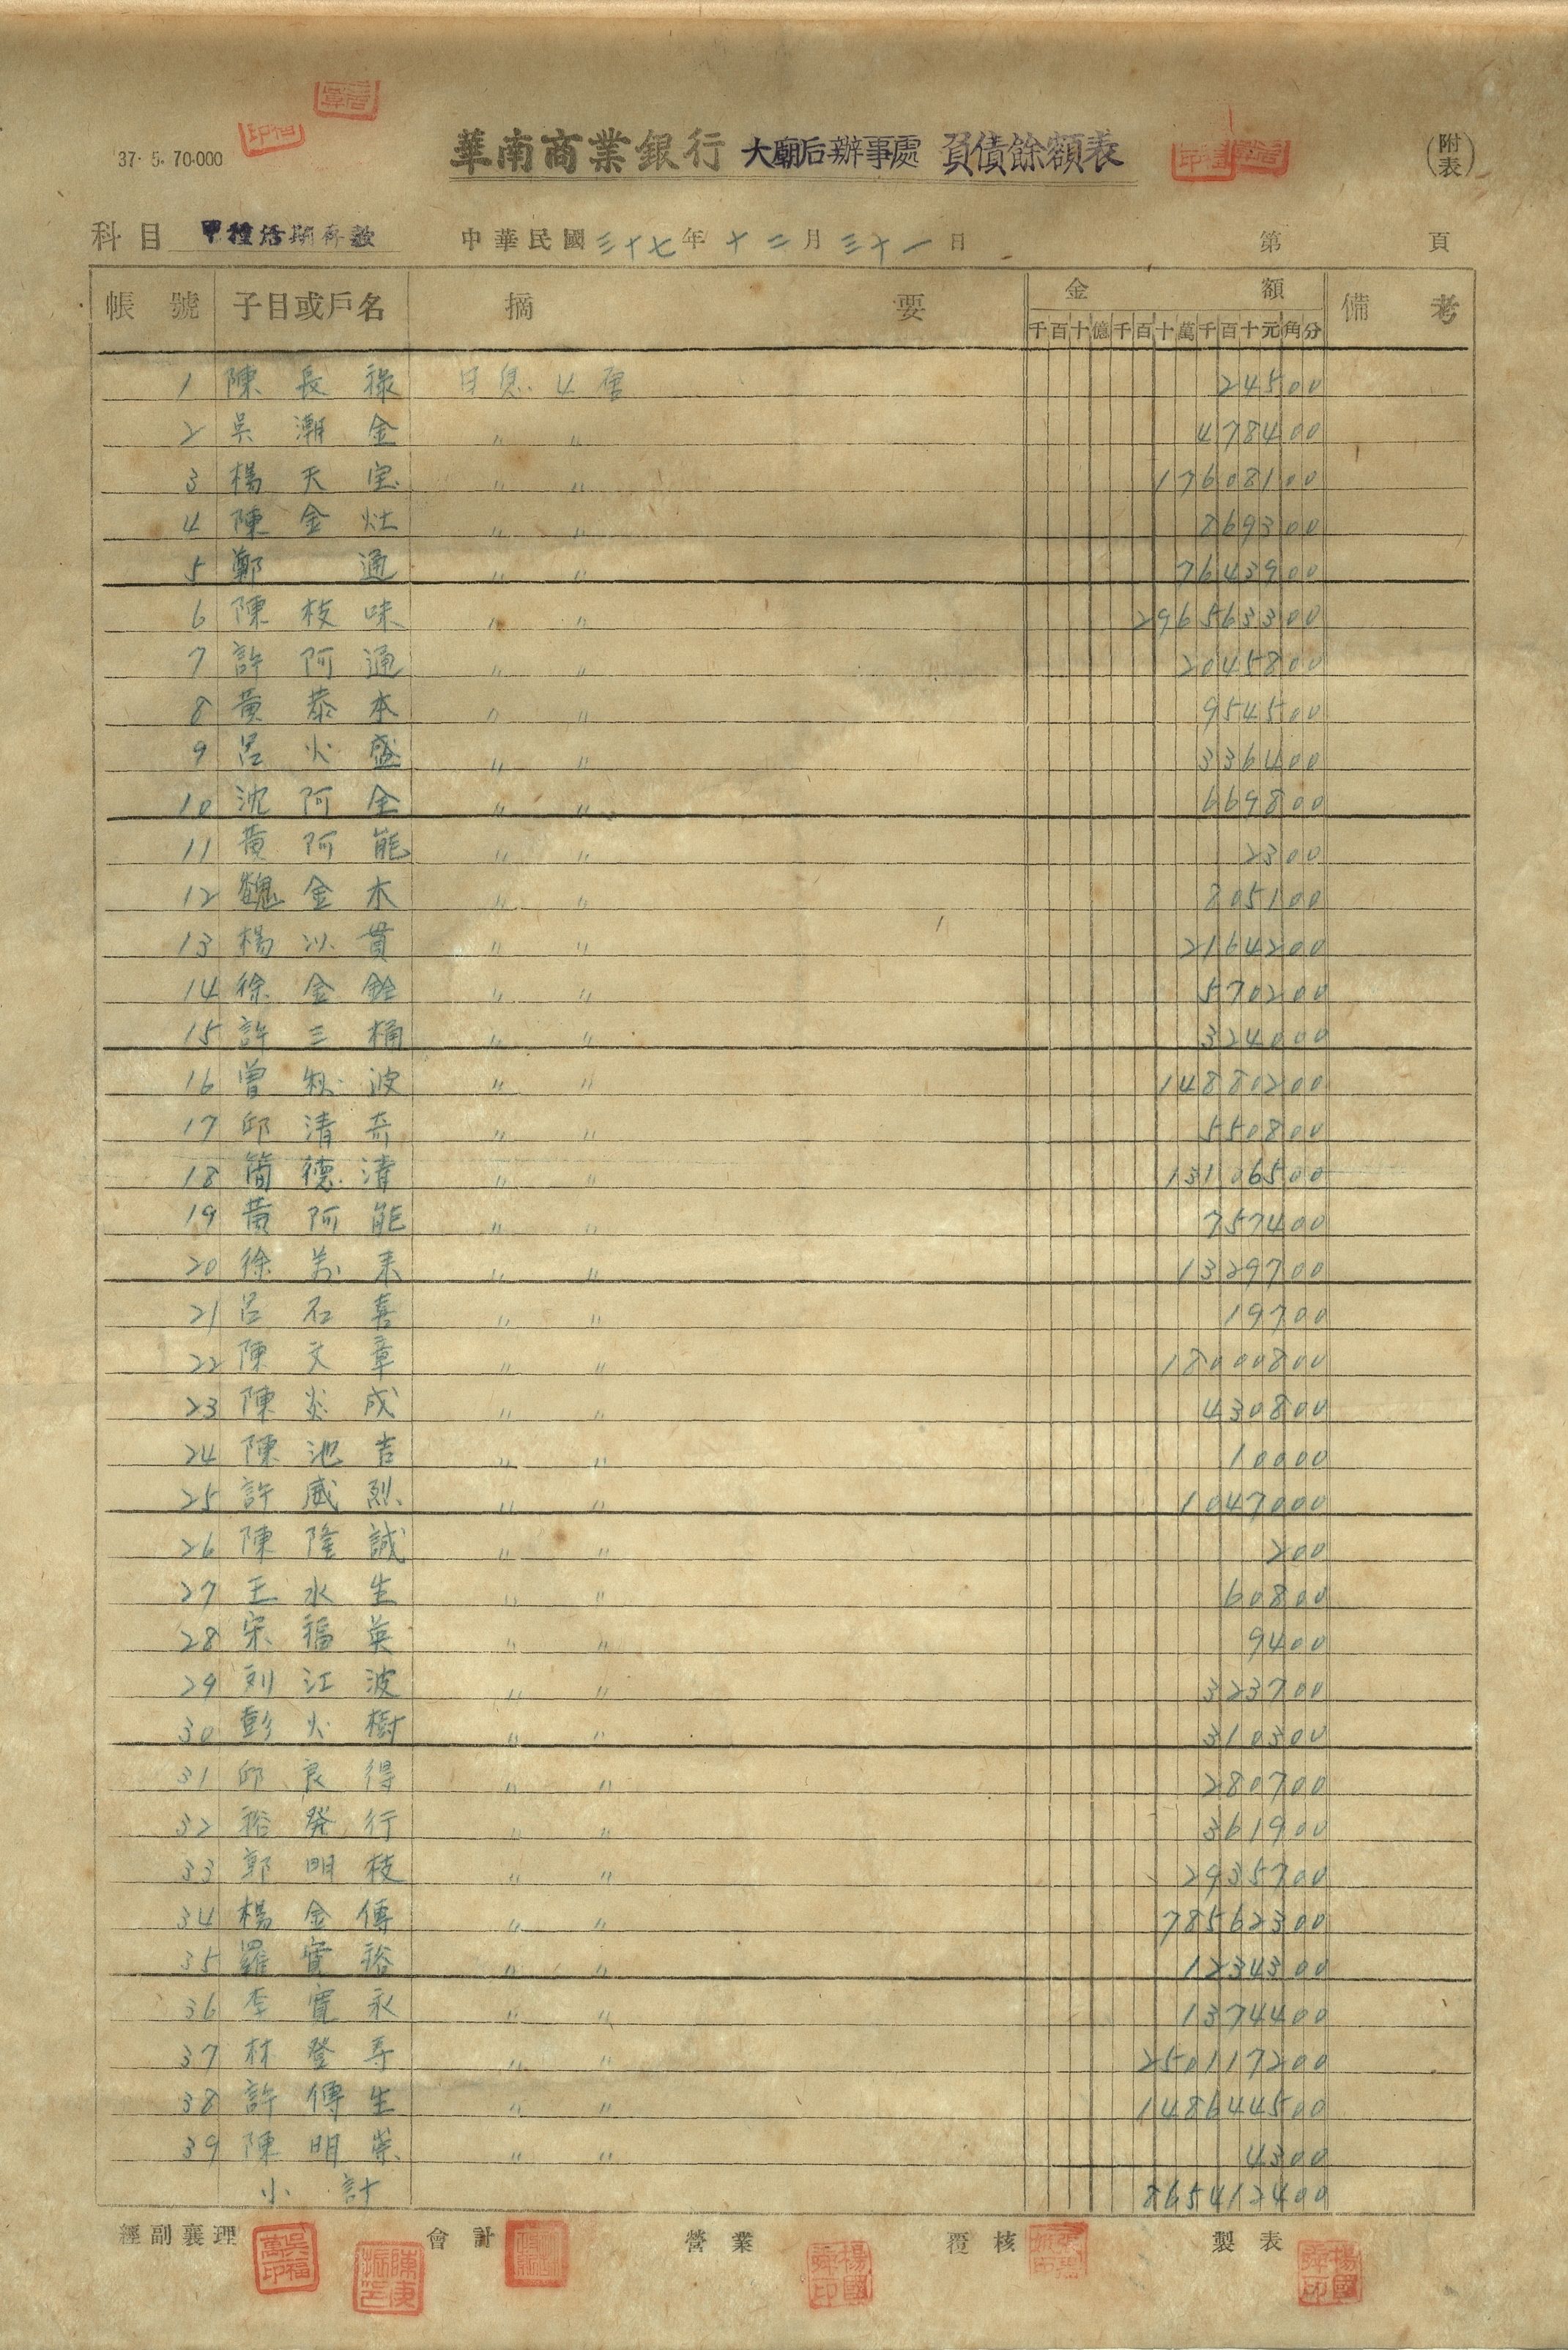 37. 5. 70.000
華南商業銀行 大廟后辦事處 負債餘額表
(附表)
科目 甲種活期存款 中華民國三十七年十二月三十一日 第 頁
帳號 子目或戶名 摘要 金額 備考
千百十億千百十萬千百十元角分
1 陳長祿 日息4厘 24500
2 吳潮金 〃 〃 478400
3 楊天宝 〃 〃 17608100
4 陳金灶 〃 〃 869300
5 鄭通 〃 〃 7643900
6 陳枝味 〃 〃 296563300
7 許阿通 〃 〃 2045800
8 黃恭本 〃 〃 954500
9 呂火盛 〃 〃 336400
10 沈阿金 〃 〃 669800
11 黃阿能 〃 〃 2300
12 魏金木 〃 〃 805100
13 楊以貫 〃 〃 2164200
14 徐金銓 〃 〃 570200
15 許三桶 〃 〃 324000
16 曾秋波 〃 〃 14880200
17 邱清奇 〃 〃 550800
18 簡德清 〃 〃 13106500
19 黃阿能 〃 〃 757400
20 徐萬來 〃 〃 1329700
21 呂石喜 〃 〃 19700
22 陳文章 〃 〃 18000800
23 陳炎成 〃 〃 430800
24 陳池吉 〃 〃 10000
25 許威烈 〃 〃 1047000
26 陳隆誠 〃 〃 200
27 王水生 〃 〃 60800
28 宋福英 〃 〃 9400
29 刘江波 〃 〃 323700
30 彭火樹 〃 〃 310300
31 邱良得 〃 〃 280700
32 裕發行 〃 〃 361900
33 郭明枝 〃 〃 2935700
34 楊金傳 〃 〃 78562300
35 羅寶裕 〃 〃 1234300
36 李寬永 〃 〃 1374400
37 林登寿 〃 〃 250117200
38 許傳生 〃 〃 148644500
39 陳明崇 〃 〃 4300
小計 865412400
經副襄理 會計 營業 覆核 製表
吳福高印 陳庚 楊國舜印 楊國舜印